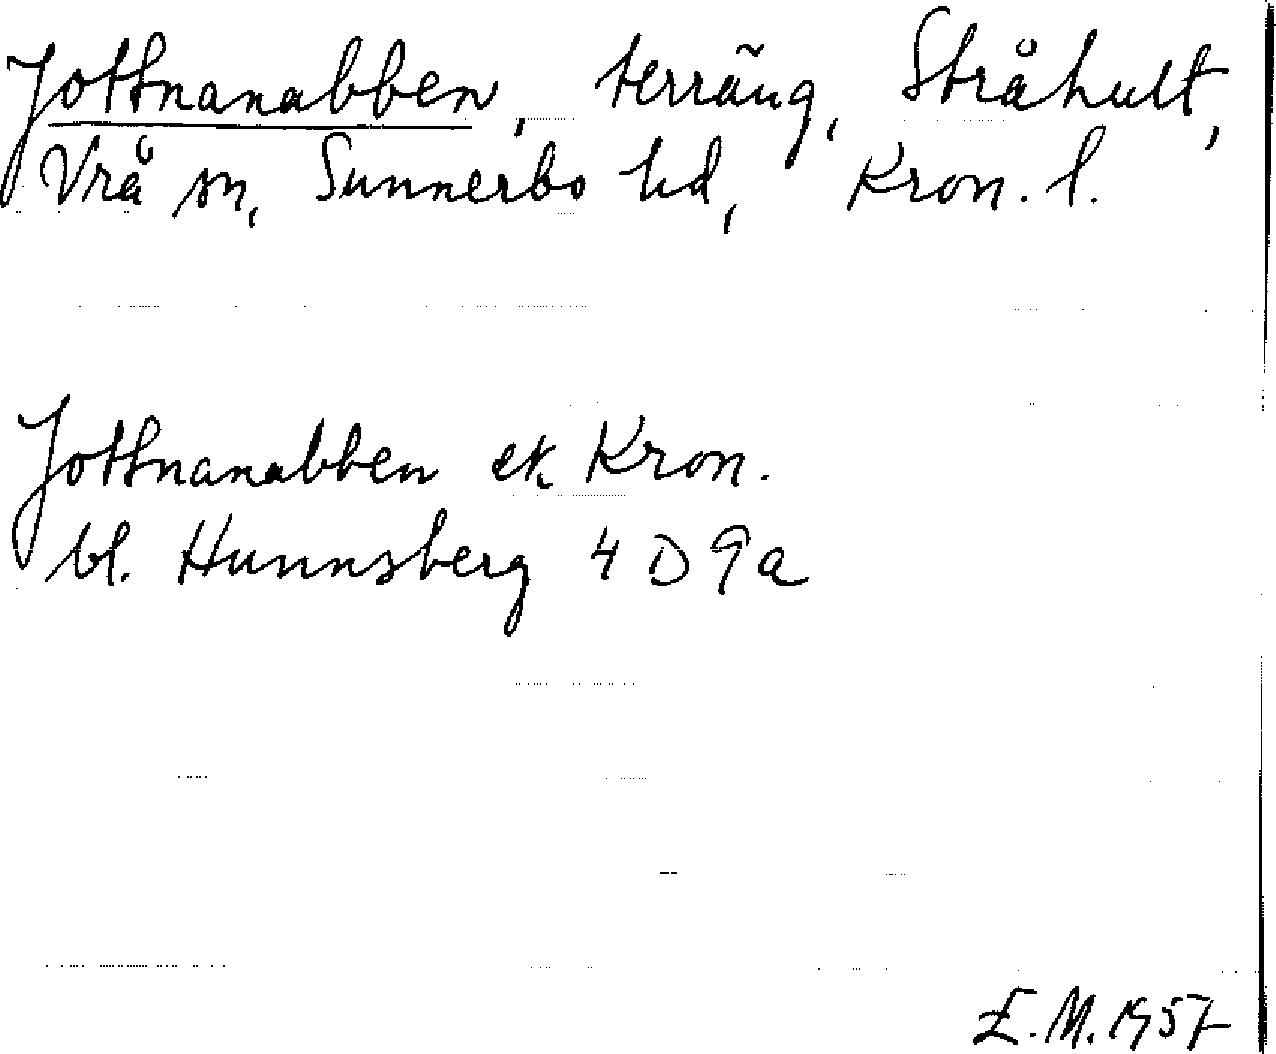 Jottnanabben, terräng, Stråhult,
Vrå sn, Sunnerbo hd, Kron. l.
Jottnanabben ek Kron.
bl. Hunnsberg 4 D 9a
E. M. 1957